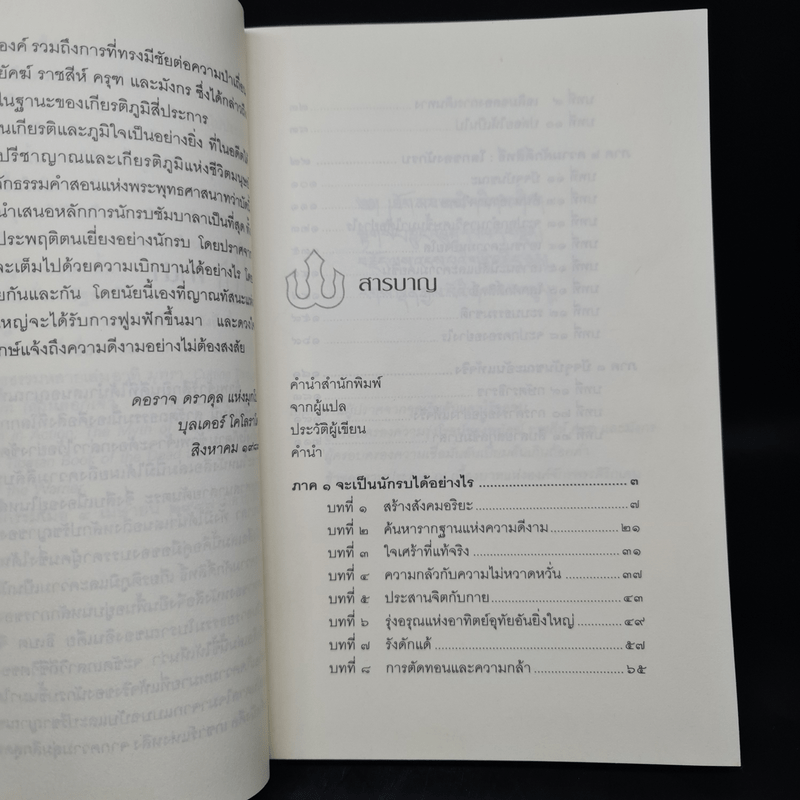 องค์ รวมถึงการที่ทรงมีชัยต่อความป่าเถื่อน
ยัคฆ์ ราชสีห์ ครุฑ และมังกร ซึ่งได้กล่าวถึง
ในฐานะของเกียรติภูมิสี่ประการ
นเกียรติและภูมิใจเป็นอย่างยิ่ง ที่ในอดีตได้
ปรีชาญาณและเกียรติภูมิแห่งชีวิตมนุษย์
ลักธรรมคำสอนแห่งพระพุทธศาสนาทว่าบัดนี้
นำเสนอหลักการนักรบชัมบาลาเป็นที่สุด
ประพฤติตนเยี่ยงอย่างนักรบ โดยปราศจาก
จะเต็มไปด้วยความเบิกบานได้อย่างไร โดย
ยกันและกัน โดยนัยนี้เองที่ญาณทัสนะและ
ใหญ่จะได้รับการฟูมฟักขึ้นมา และดวงใจ
ักษ์แจ้งถึงความดีงามอย่างไม่ต้องสงสัย
ดอราจ ดราดุล แห่งมุกโป
บุลเดอร์ โคโลราโด
สิงหาคม
สารบาญ
คำนำสำนักพิมพ์
จากผู้แปล
ประวัติผู้เขียน
คำนำ
ภาค ๑ จะเป็นนักรบได้อย่างไร ๓
บทที่ ๑ สร้างสังคมอริยะ ๗
บทที่ ๒ ค้นหารากฐานแห่งความดีงาม ๒๑
บทที่ ๓ ใจเศร้าที่แท้จริง ๓๑
บทที่ ๔ ความกลัวกับความไม่หวาดหวั่น ๓๗
บทที่ ๕ ประสานจิตกับกาย ๔๓
บทที่ ๖ รุ่งอรุณแห่งอาทิตย์อุทัยอันยิ่งใหญ่ ๔๙
บทที่ ๗ รังดักแด้ ๕๗
บทที่ ๘ การตัดทอนและความกล้า ๖๕